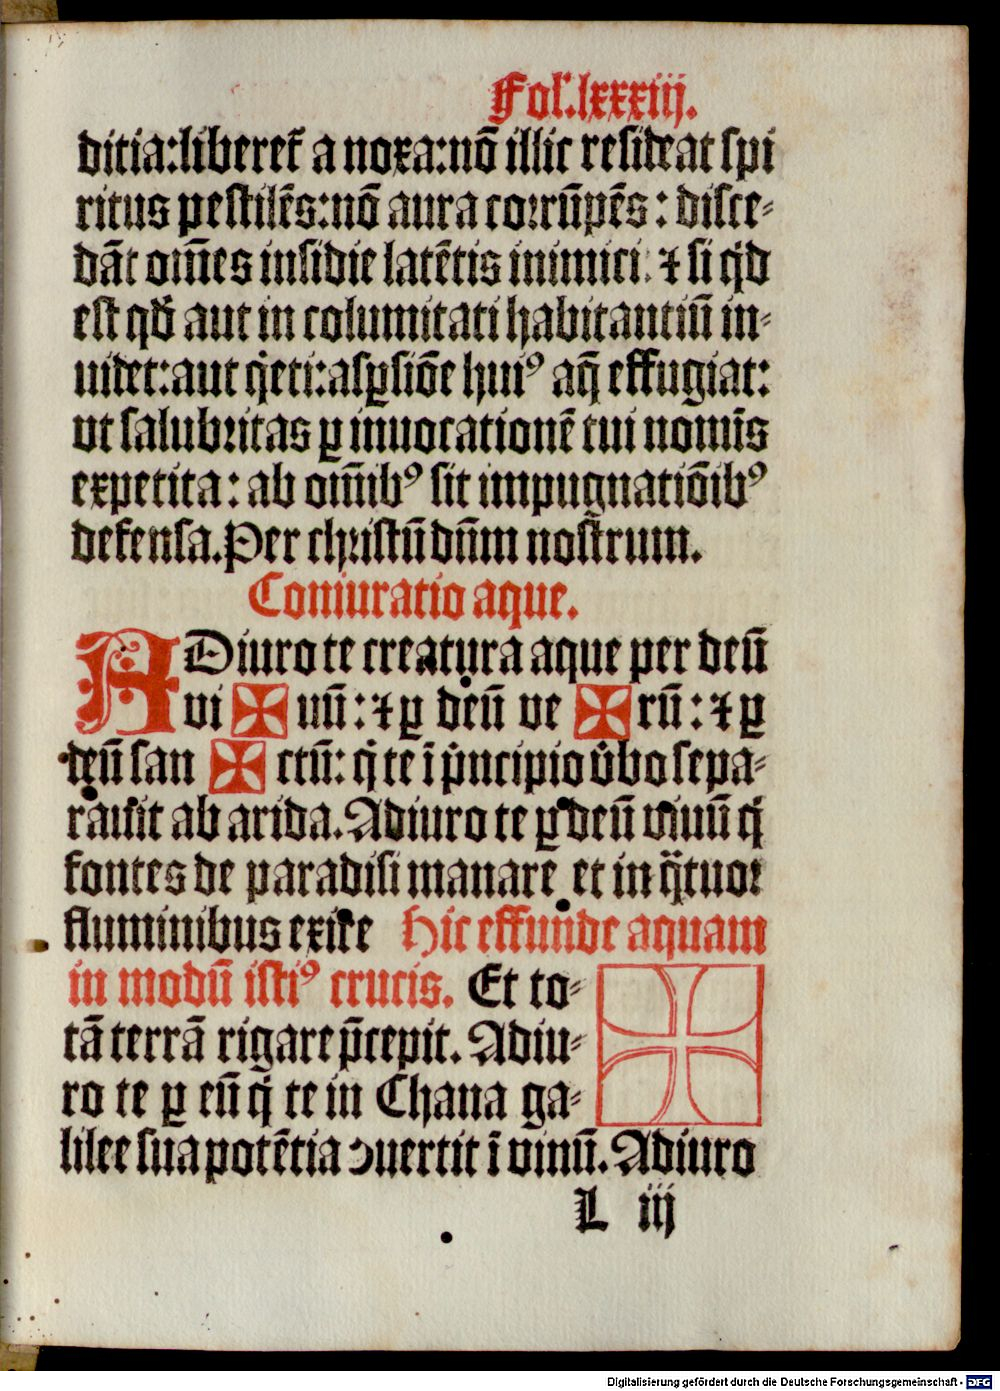 Fol'. lxxxiij.
ditia: liberet̄ a noxa: nō illic resideat spi
ritus pestilēs: nō aura corrūpēs: disce-
dāt om̄es insidie latētis inimici: ⁊ si qͥd
est qd̓ aut in columitati habitantiū in-
uidet: aut qͥeti: asꝑsiōe huiꝰ aq̄ effugiat:
vt salubritas ꝑ inuocationē tui nomīs
expetita: ab om̄ibꝰ sit impugnatiōibꝰ
defensa. Per christū dn̄m nostrum.
Coniuratio aque.
ADiuro te creatura aque per deū
vi ✠ uū: ⁊ ꝑ deū ve ✠ rū: ⁊ ꝑ
deū san ✠ ctū: qͥ te ī pͥncipio v̓bo sepa-
rauit ab arida. Adiuro te ꝑ deū viuū qͥ
fontes de paradisi manare et in qᷓtuor
fluminibus exire Hic effunde aquam
in modū istiꝰ crucis. Et to-
tā terrā rigare p̄cepit. Adiu-
ro te ꝑ eū qͥ te in Chana ga-
lilee sua potētia ꝯuertit ī vinū. Adiuro
L iij
Digitalisierung gefördert durch die Deutsche Forschungsgemeinschaft - DFG